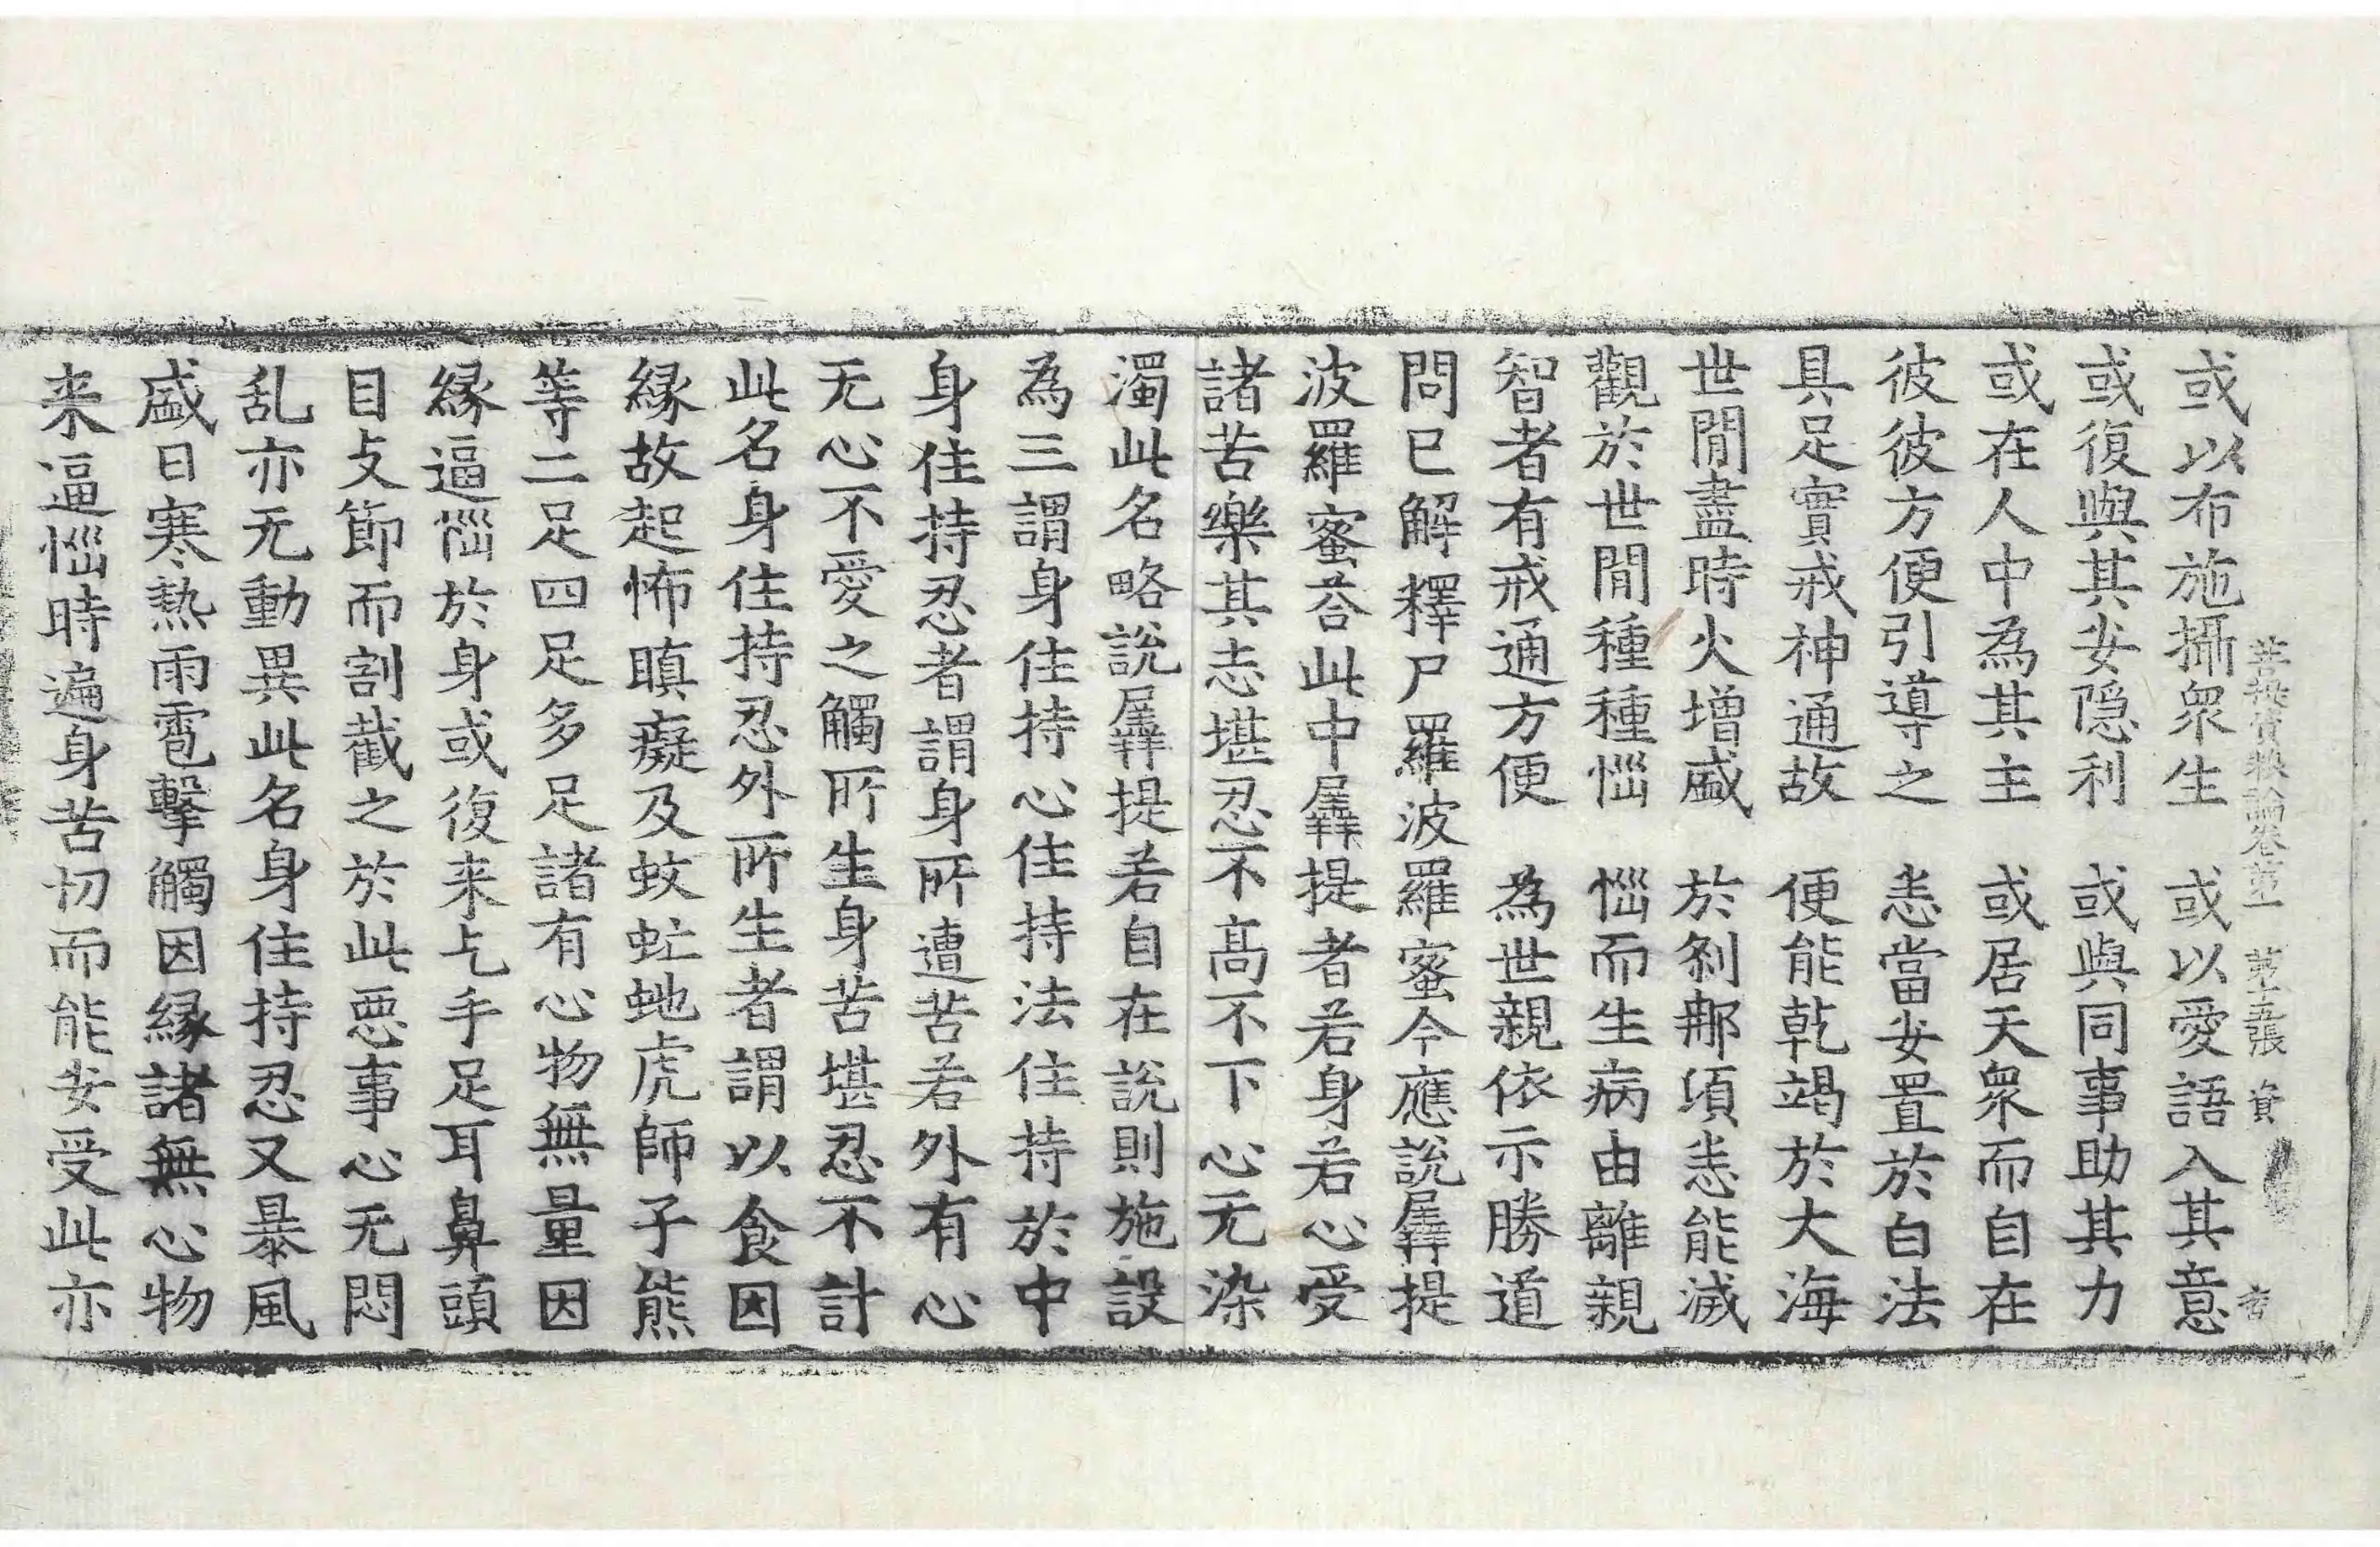 菩提資糧論卷第二 第十五張 資
或以布施攝眾生 或以愛語入其意
或復與其安隐利 或與同事助其力
或在人中為其主 或居天眾而自在
彼彼方便引導之 悉當安置於白法
具足實戒神通故 便能乾竭於大海
世間盡時火增盛 於剎那頃悉能滅
觀於世間種種惱 惱而生病由離親
智者有戒通方便 為世親依示勝道
問已解釋尸羅波羅蜜今應說羼提
波羅蜜荅此中羼提者若身若心受
諸苦樂其志堪忍不高不下心无染
濁此名略說羼提若自在說則施設
為三謂身住持心住持法住持於中
身住持忍者謂身所遭苦若外有心
无心不愛之觸所生身苦堪忍不計
此名身住持忍外所生者謂以食因
緣故起怖瞋癡及蚊虻虵虎師子熊
等二足四足多足諸有心物無量因
緣逼惱於身或復来乞手足耳鼻頭
目支節而割截之於此惡事心无悶
乱亦无動異此名身住持忍又暴風
盛日寒熱雨雹擊觸因緣諸無心物
来逼惱時遍身苦切而能安受此亦